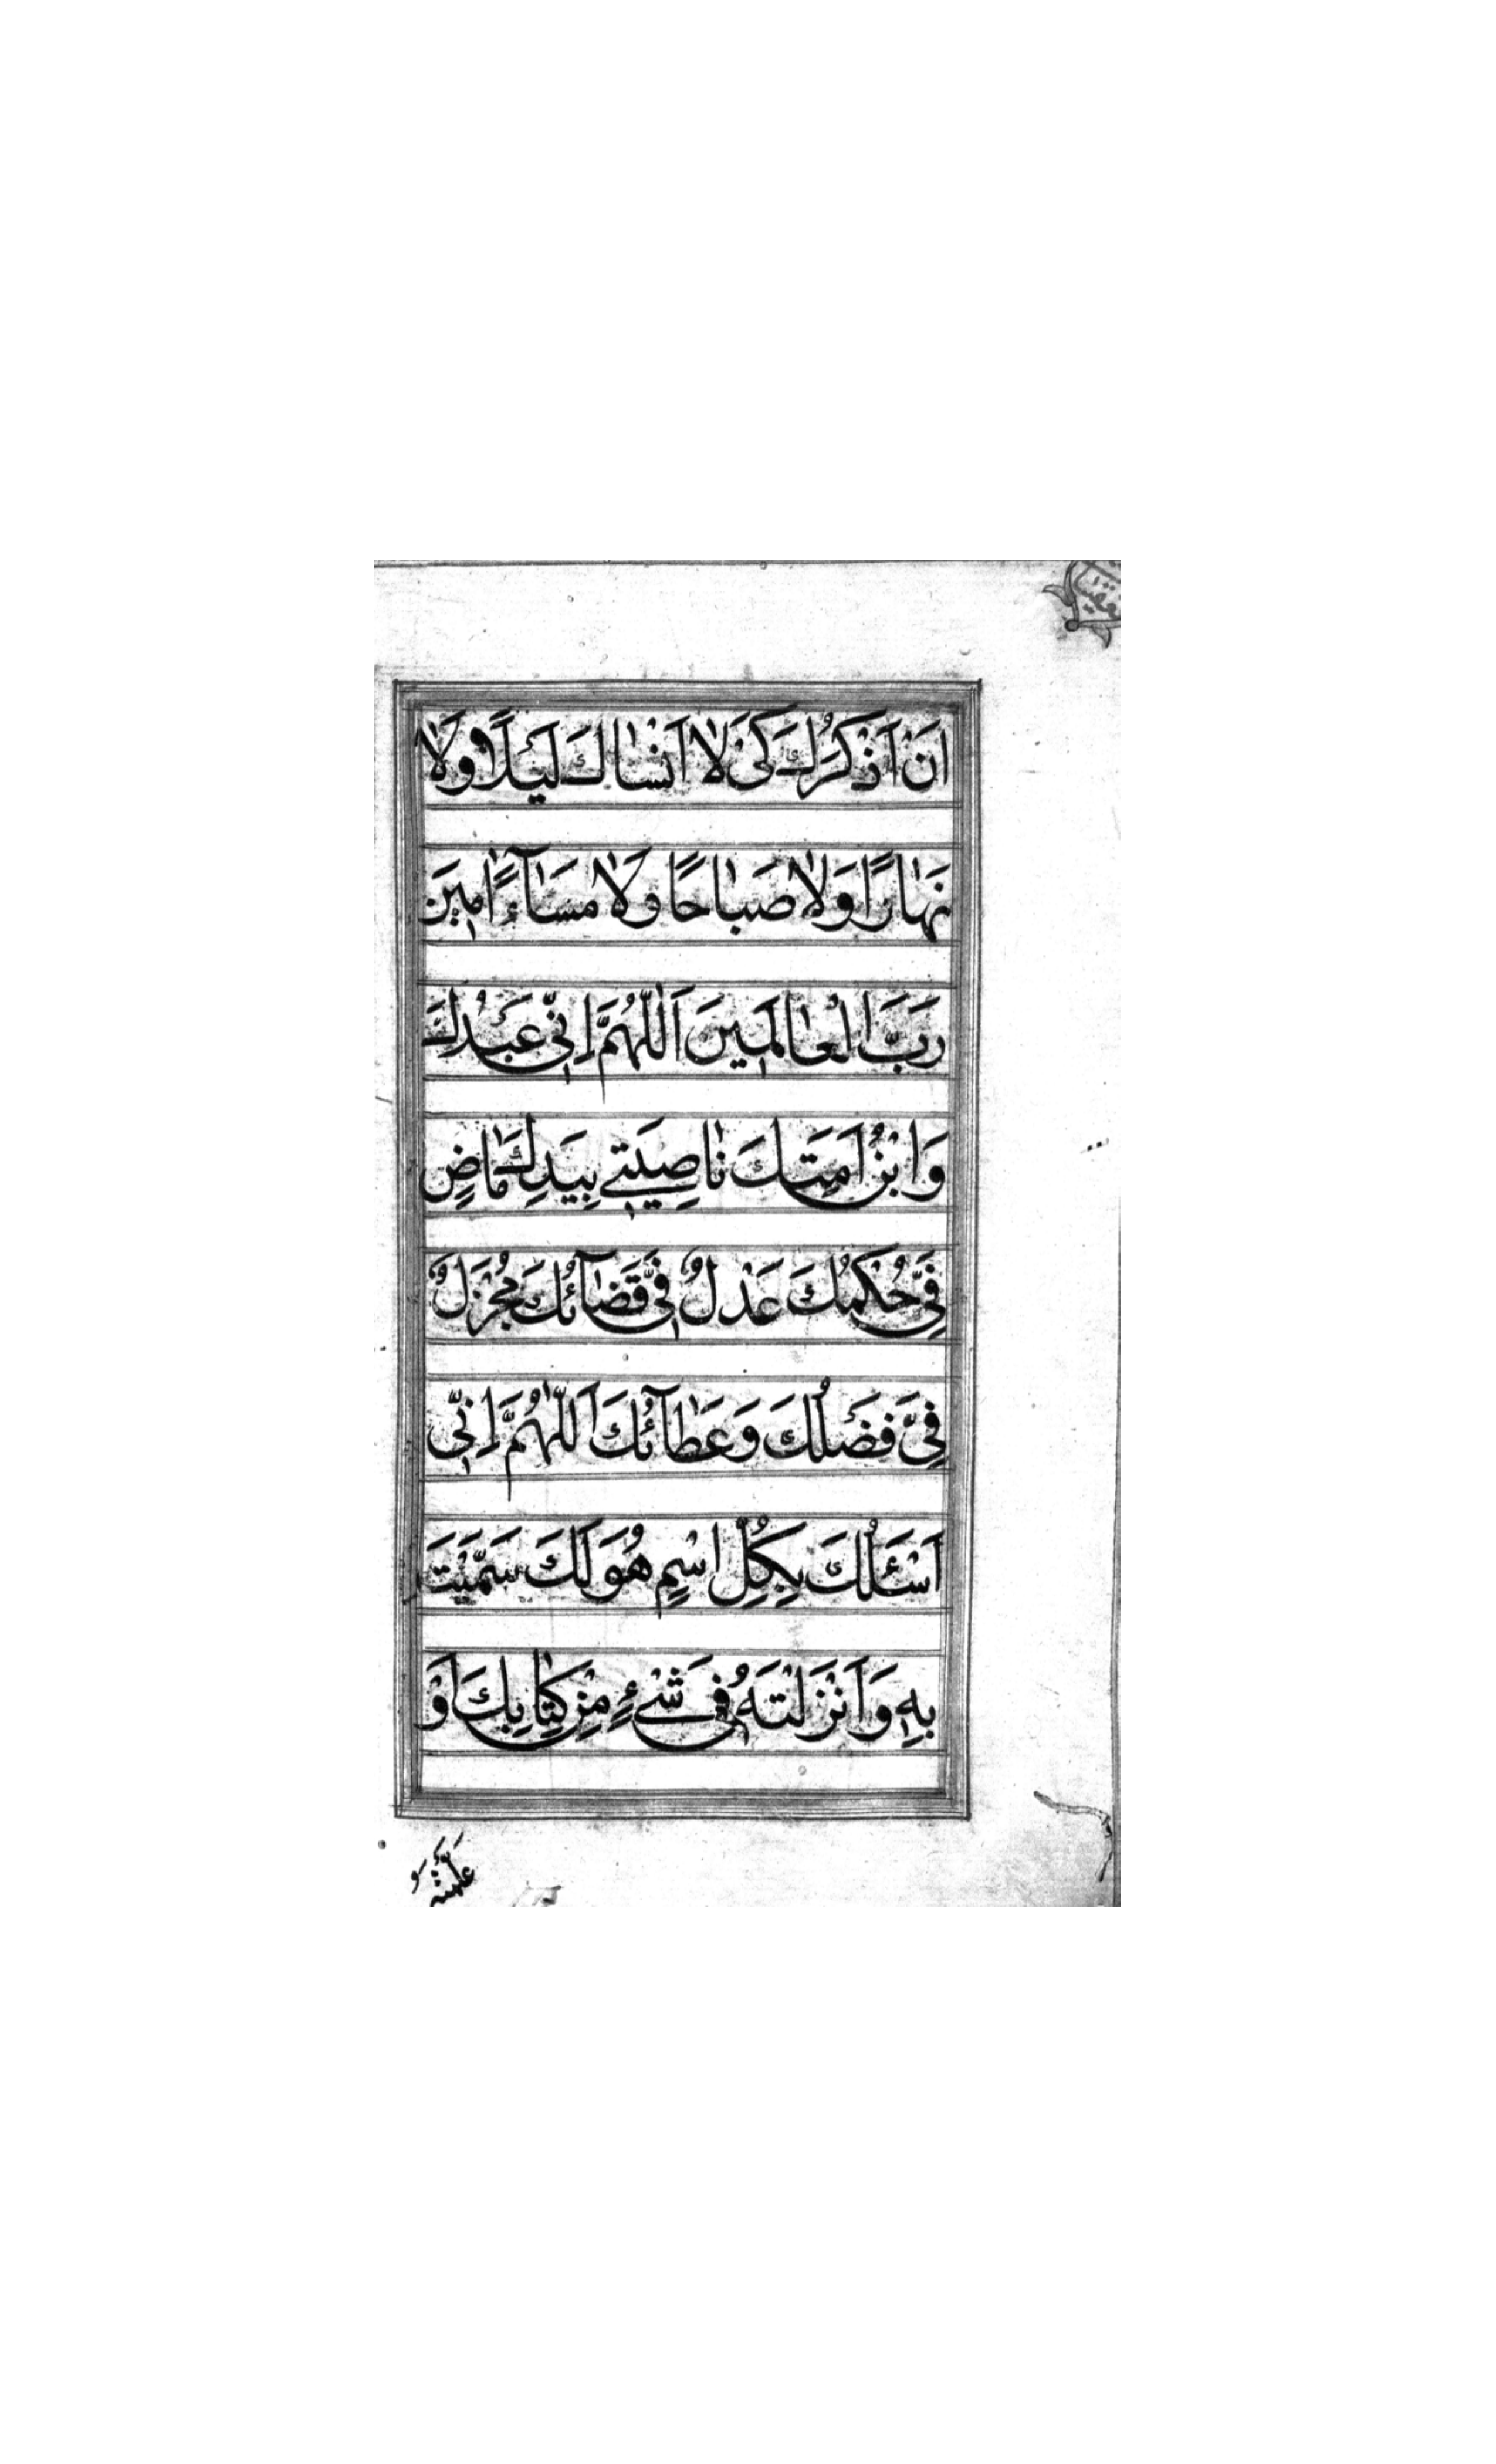 تعقیبات
اَنْ اَذْكُرَكَ كَيْ لٰا اَنْسٰاكَ لَيْلًا وَلٰا
نَهٰارًا وَلٰا صَبٰاحًا وَلٰا مَسٰآءً اٰمينَ
رَبَّ الْعٰالَمينَ اَللّٰهُمَّ اِنّي عَبْدُكَ
وَابْنُ اَمَتِكَ نٰاصِيَتي بِيَدِكَ مٰاضٍ
فِيَّ حُكْمُكَ عَدْلٌ فِيَّ قَضٰآئُكَ مُجْزَلٌ
فِيَّ فَضْلُكَ وَعَطٰآئُكَ اَللّٰهُمَّ اِنّي
اَسْئَلُكَ بِكُلِّ اسْمٍ هُوَ لَكَ سَمَّيْتَ
بِهِ وَاَنْزَلْتَهُ في شَيْءٍ مِنْ كِتٰابِكَ اَوْ